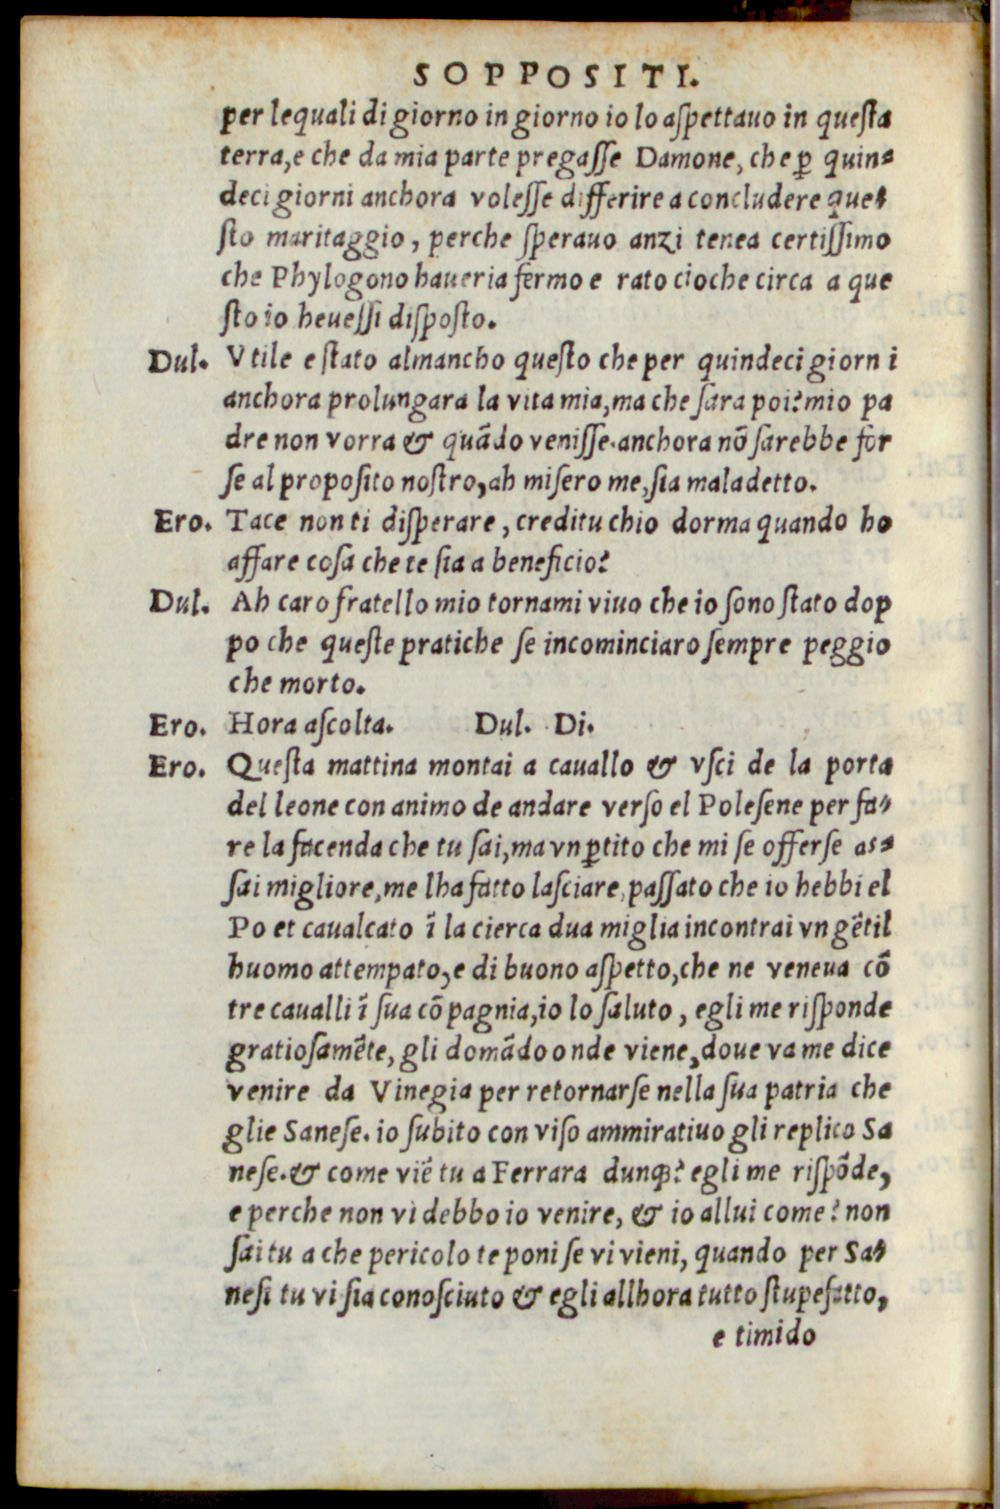 SOPPOSITI.
per lequali di giorno in giorno io lo aſpettauo in queſta
terra, e che da mia parte pregaſſe Damone, che ꝑ quin-
deci giorni anchora voleſſe differire a concludere que-
ſto maritaggio, perche ſperauo anzi tenea certiſſimo
che Phylogono haueria fermo e rato cioche circa a que
ſto io heueſſi diſpoſto.
Dul. Vtile e ſtato almancho queſto che per quindeci giorn i
anchora prolungara la vita mia, ma che ſara poi? mio pa
dre non vorra & quãdo veniſſe. anchora nõ ſarebbe for
ſe al propoſito noſtro, ah miſero me, ſia maladetto.
Ero. Tace non ti diſperare, creditu chio dorma quando ho
affare coſa che te ſia a beneficio?
Dul. Ah caro fratello mio tornami viuo che io ſono ſtato dop
po che queſte pratiche ſe incominciaro ſempre peggio
che morto.
Ero. Hora aſcolta. Dul. Di.
Ero. Queſta mattina montai a cauallo & vſci de la porta
del leone con animo de andare verſo el Poleſene per fa-
re la facenda che tu ſai, ma vn ꝑtito che mi ſe offerſe aſ-
ſai migliore, me lha fatto laſciare, paſſato che io hebbi el
Po et caualcato ĩ la cierca dua miglia incontrai vn gẽtil
huomo attempato, e di buono aſpetto, che ne veneua cõ
tre caualli ĩ ſua cõpagnia, io lo ſaluto, egli me riſponde
gratioſamẽte, gli domãdo onde viene, doue va me dice
venire da Vinegia per retornarſe nella ſua patria che
glie Saneſe. io ſubito con viſo ammiratiuo gli replico Sa
neſe. & come viẽ tu a Ferrara dunqꝫ? egli me riſpõde,
e perche non vi debbo io venire, & io allui come? non
ſai tu a che pericolo te poni ſe vi vieni, quando per Sa-
neſi tu vi ſia conoſciuto & egli allhora tutto ſtupefatto,
e timido